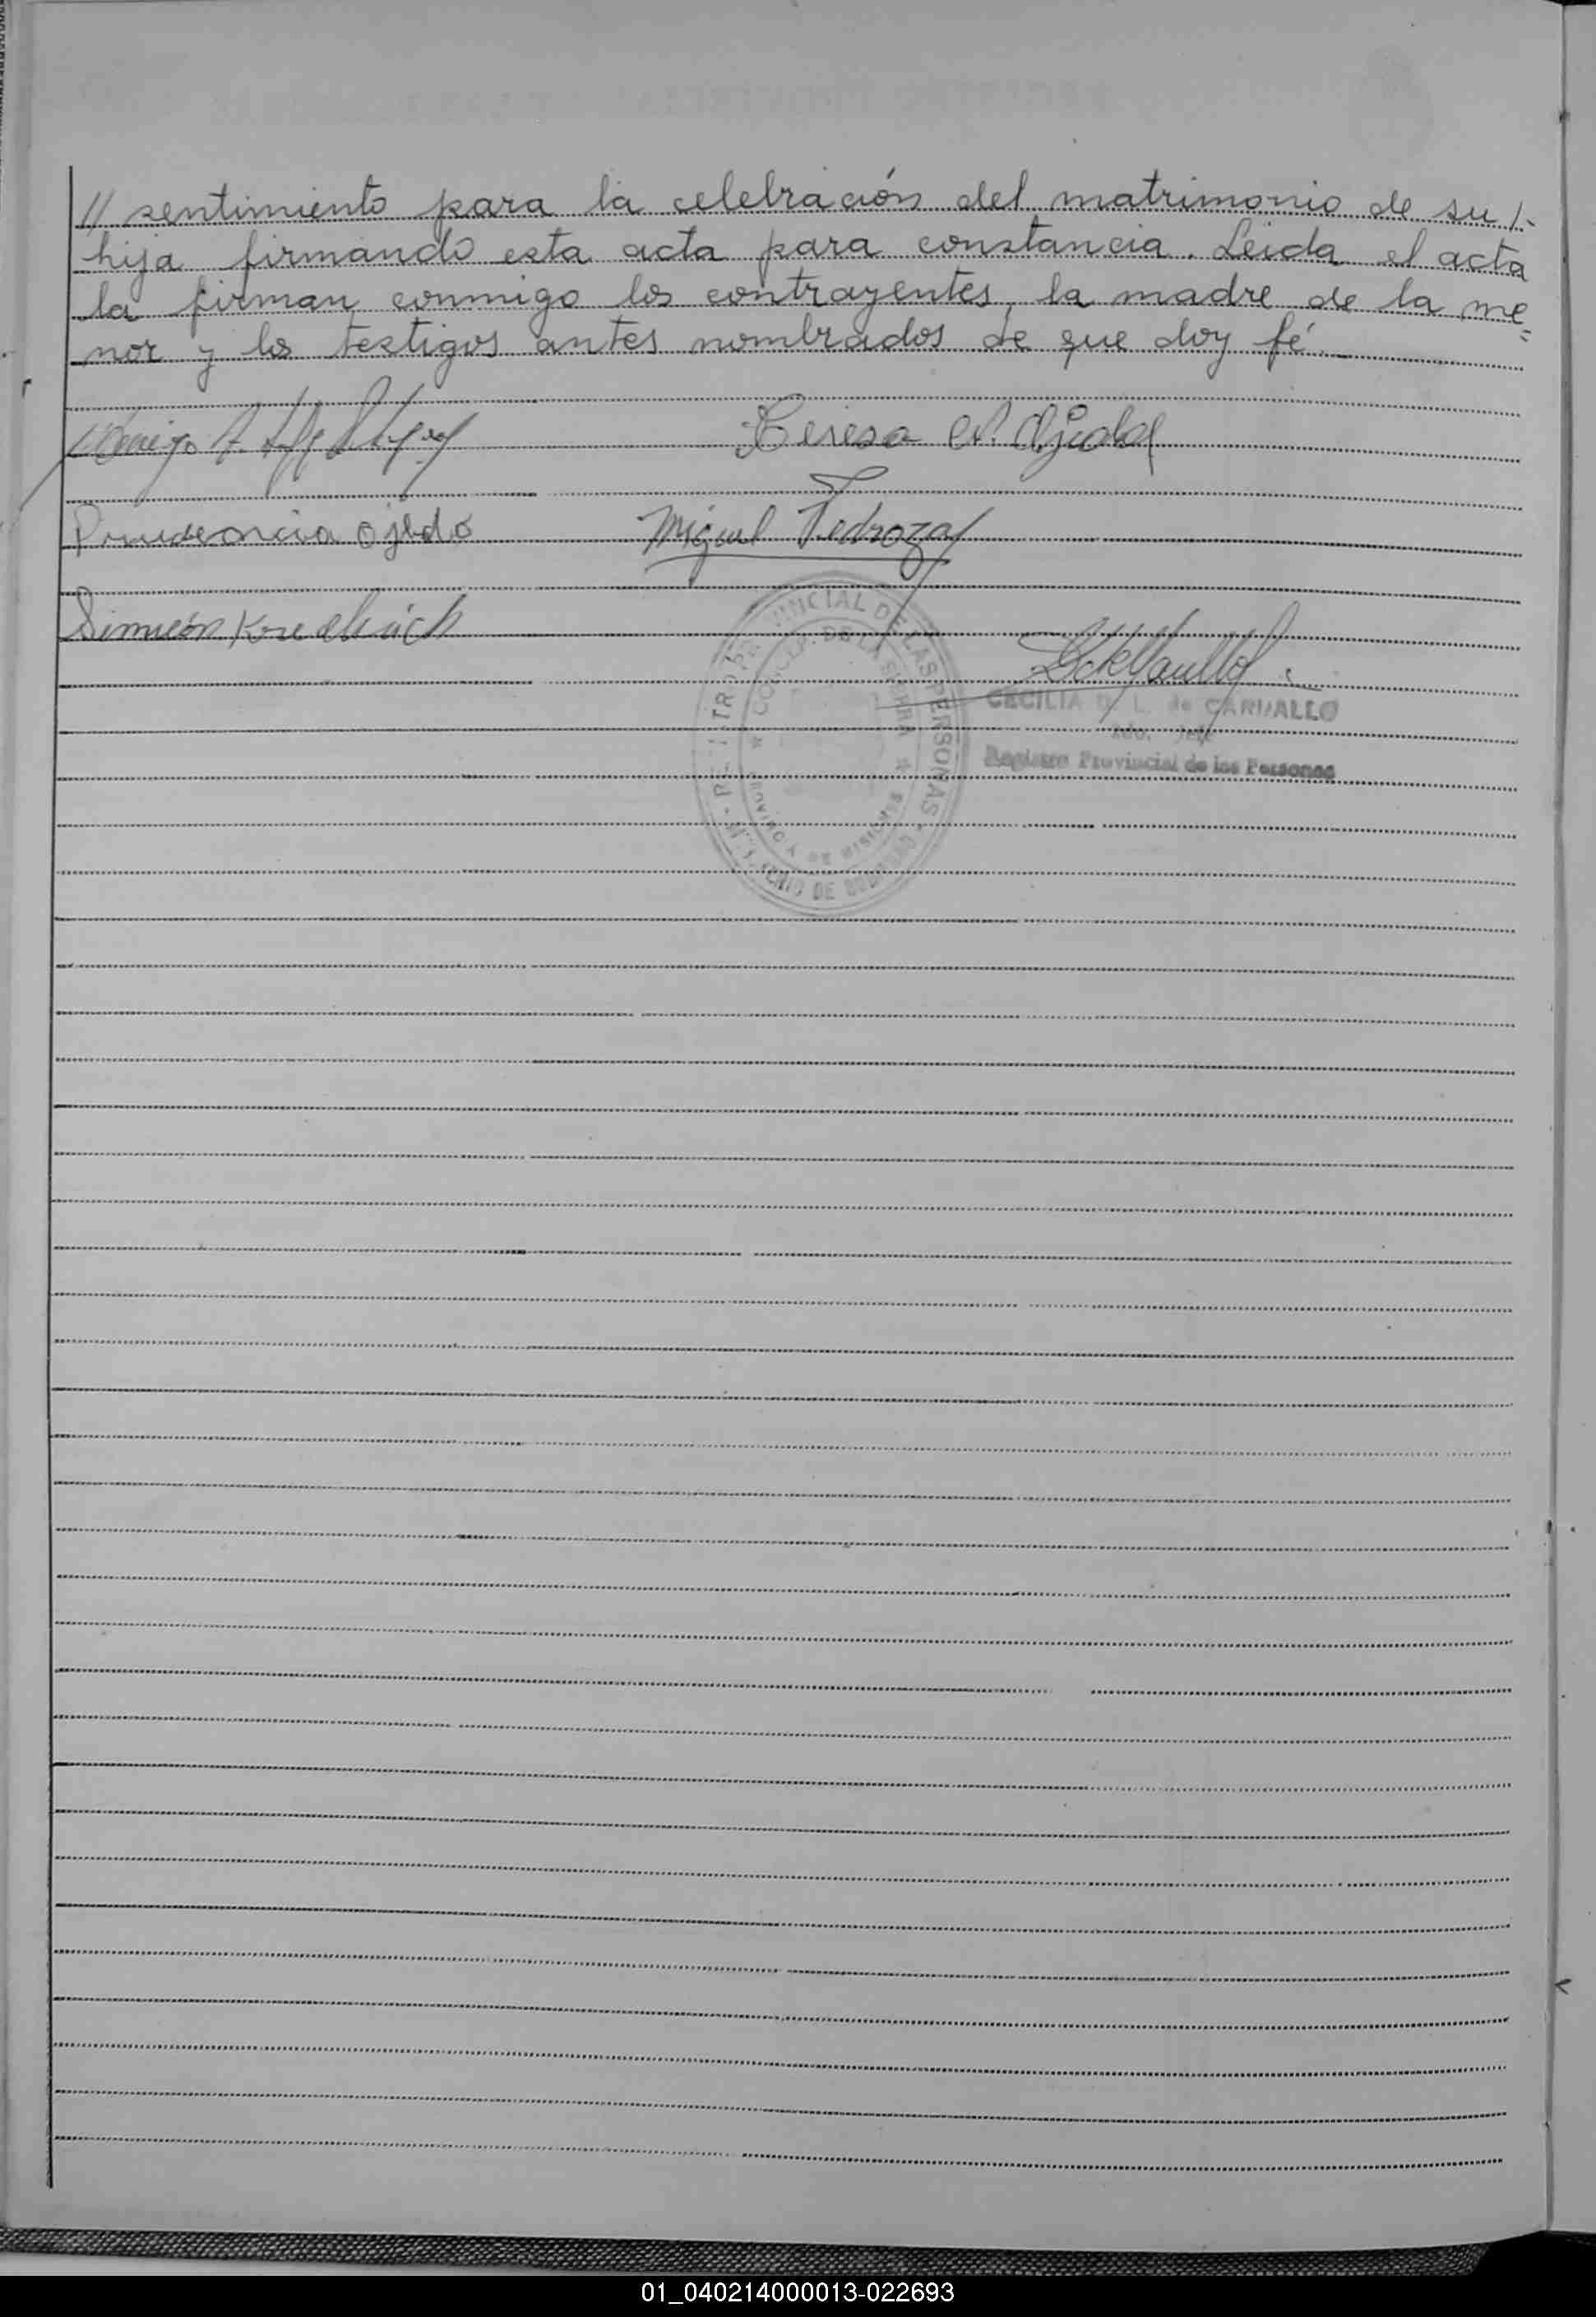 // sentimiento para la celebración del matrimonio de su /-
hija firmando esta acta para constancia. Leida el acta
la firman conmigo los contrayentes, la madre de la me=
nor y los testigos antes nombrados de que doy fé.
Teresa Ojeda
Prudencia Ojeda
Miguel Pedrozo
Simeón
PROVINCIAL DE LAS PERSONAS
CONCEP. DE LA SIERRA
PROVINCIA DE MISIONES
MINISTERIO DE GOBIERNO
CECILIA D. L. de CARVALLO
2do. Jefe
Registro Provincial de las Personas
01_040214000013-022693